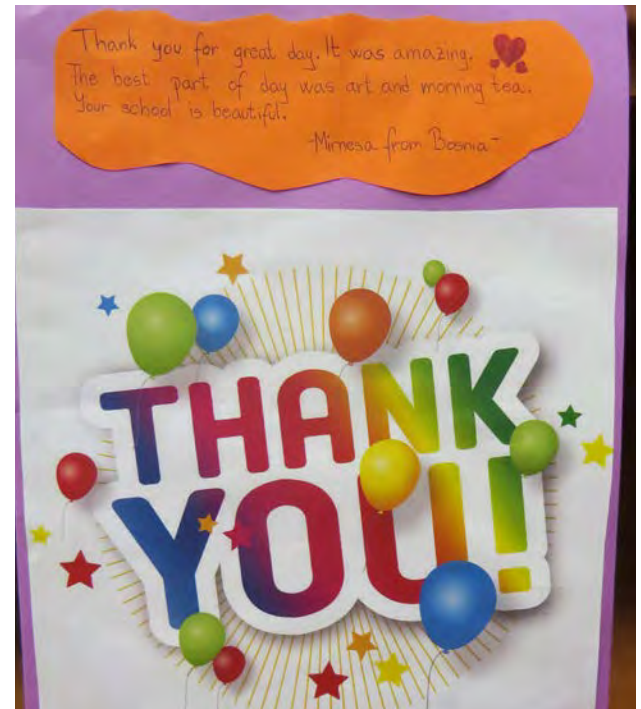 Thank you for great day. It was amazing.
The best part of day was art and morning tea.
Your school is beautiful.
-Mirnesa from Bosnia-
THANK
YOU!